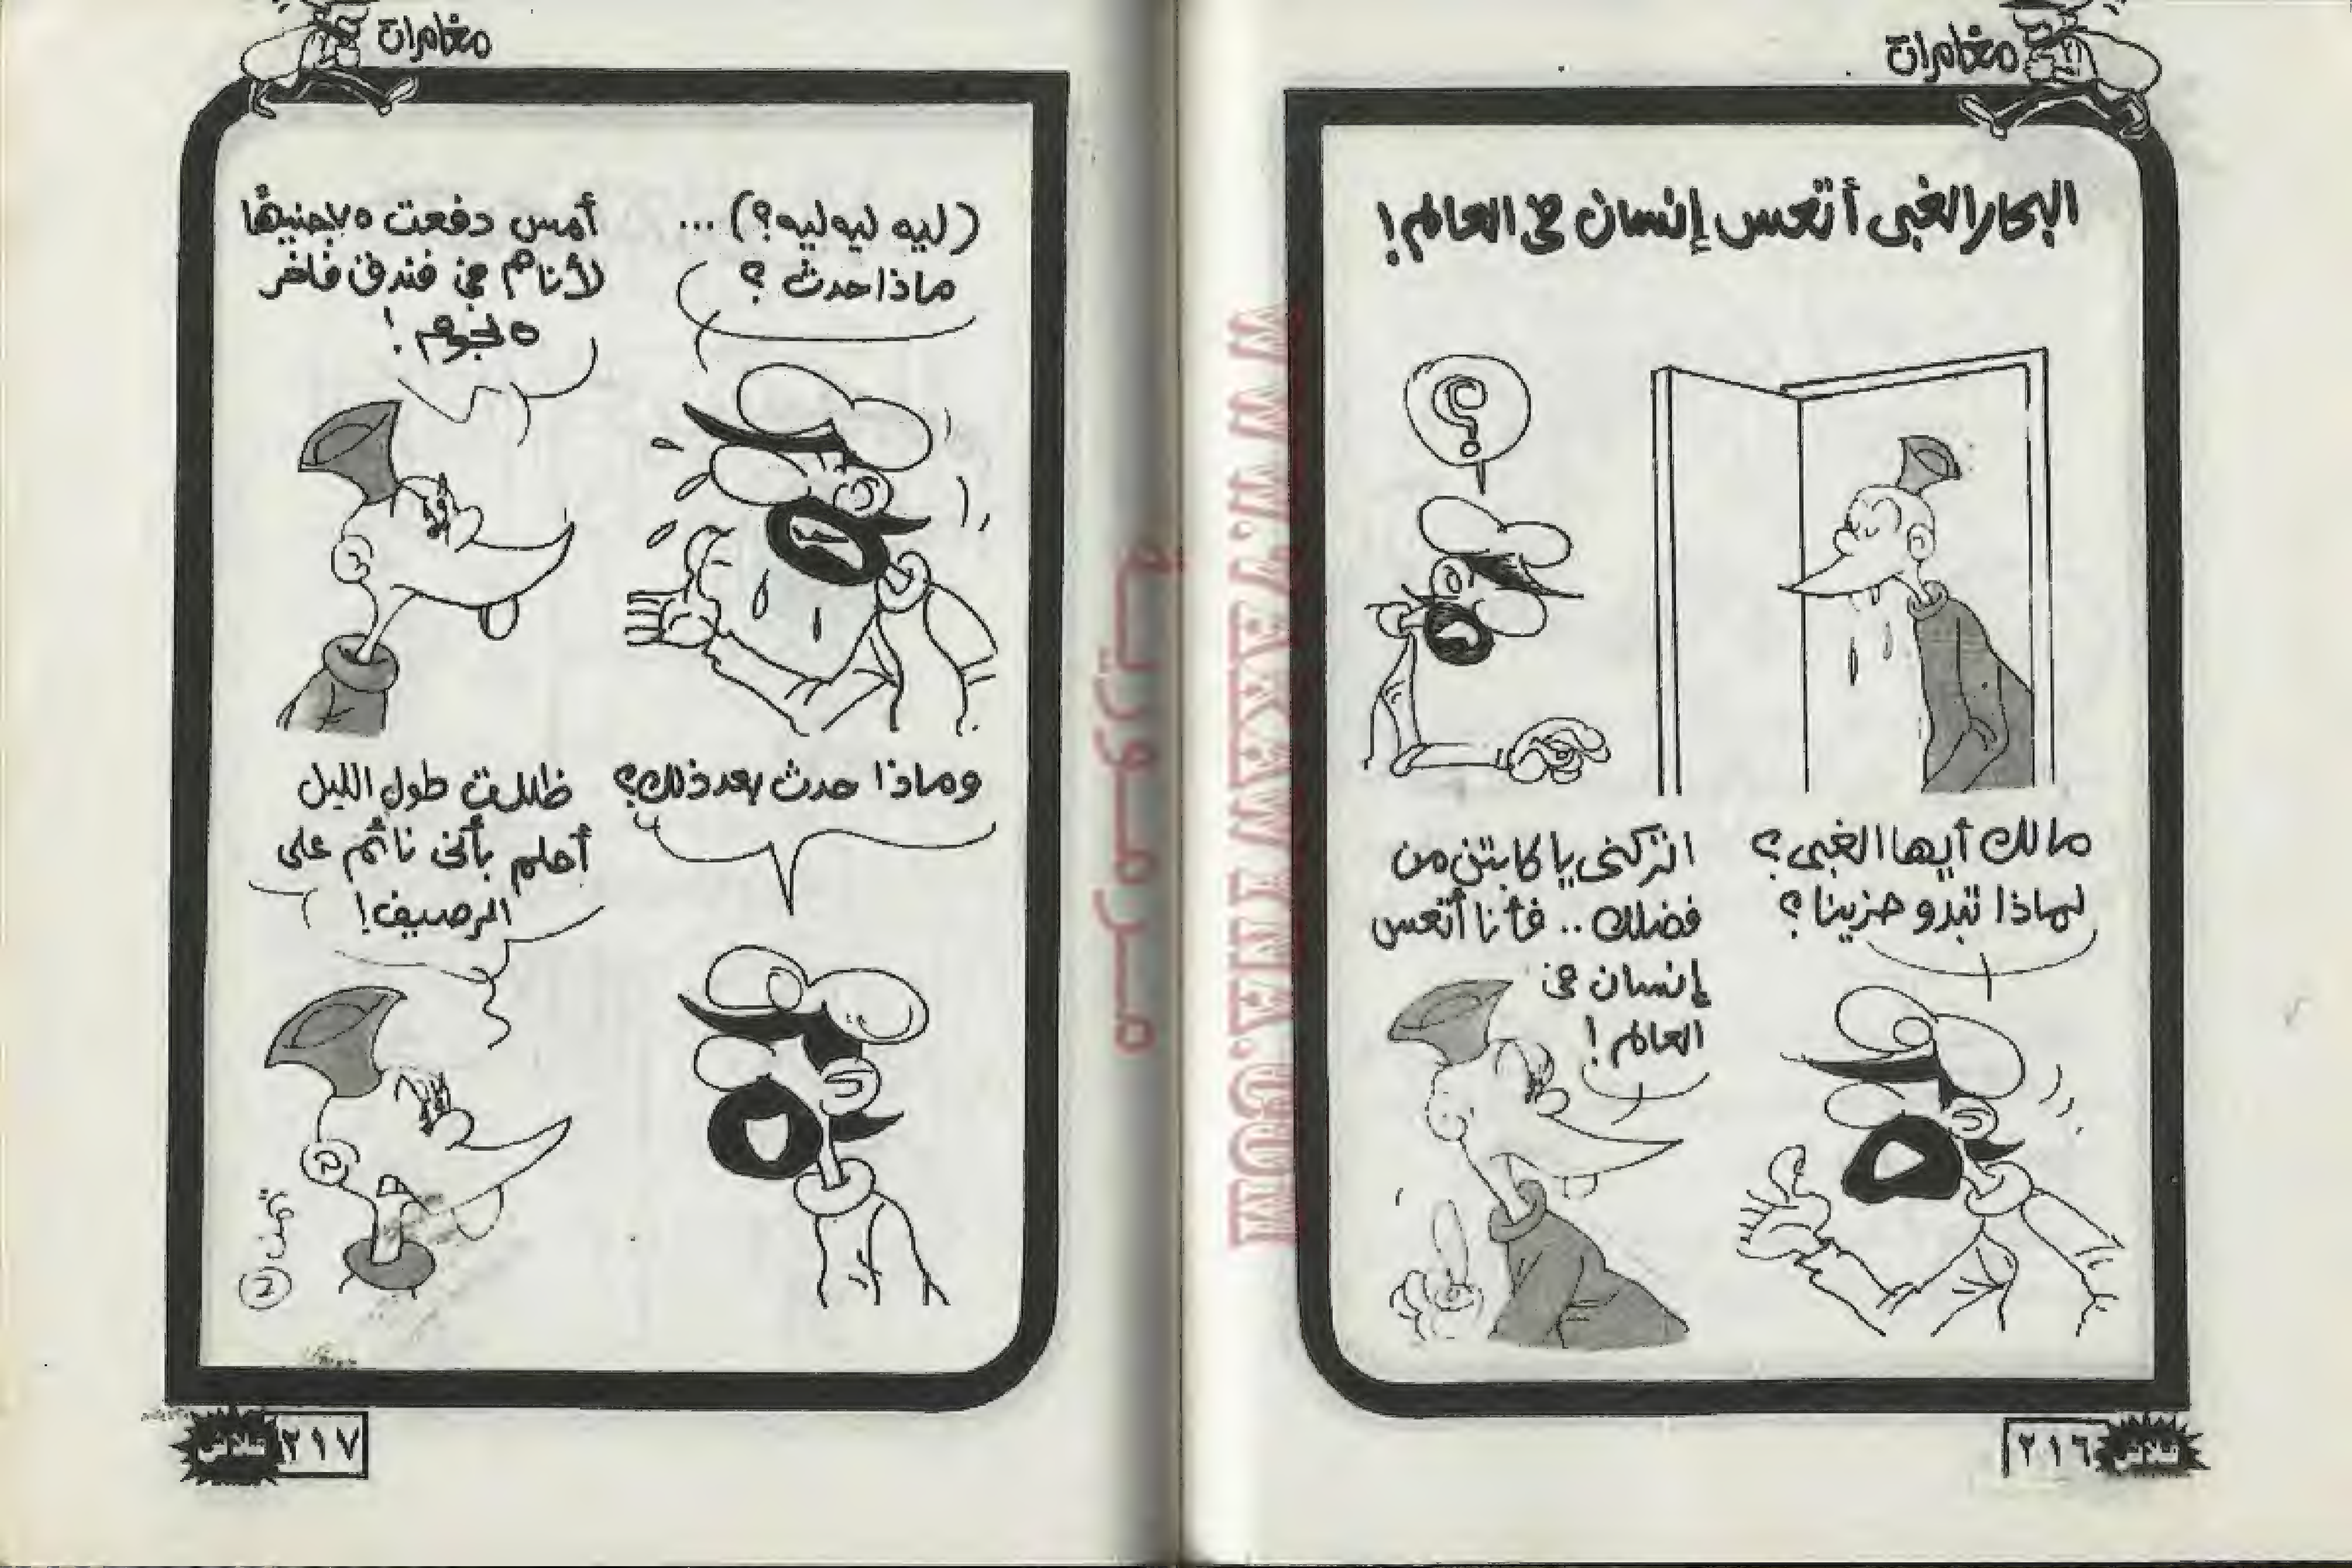 مغامرات
البحار الغبى أتعس إنسان فى العالم!
؟
مالك أيها الغبى؟
لماذا تبدو حزينا؟
اتركنى يا كابتن من
فضلك .. فأنا أتعس
إنسان فى
العالم!
٢١٦
فلاش
مغامرات
(ليه ليه ليه؟) ...
ماذا حدث؟
أمس دفعت ٧٥ جنيهًا
لأنام فى فندق فاخر
٥ نجوم!
وماذا حدث بعد ذلك؟
ظللت طول الليل
أحلم بأنى نائم على
الرصيف!
تمت
٢١٧
فلاش